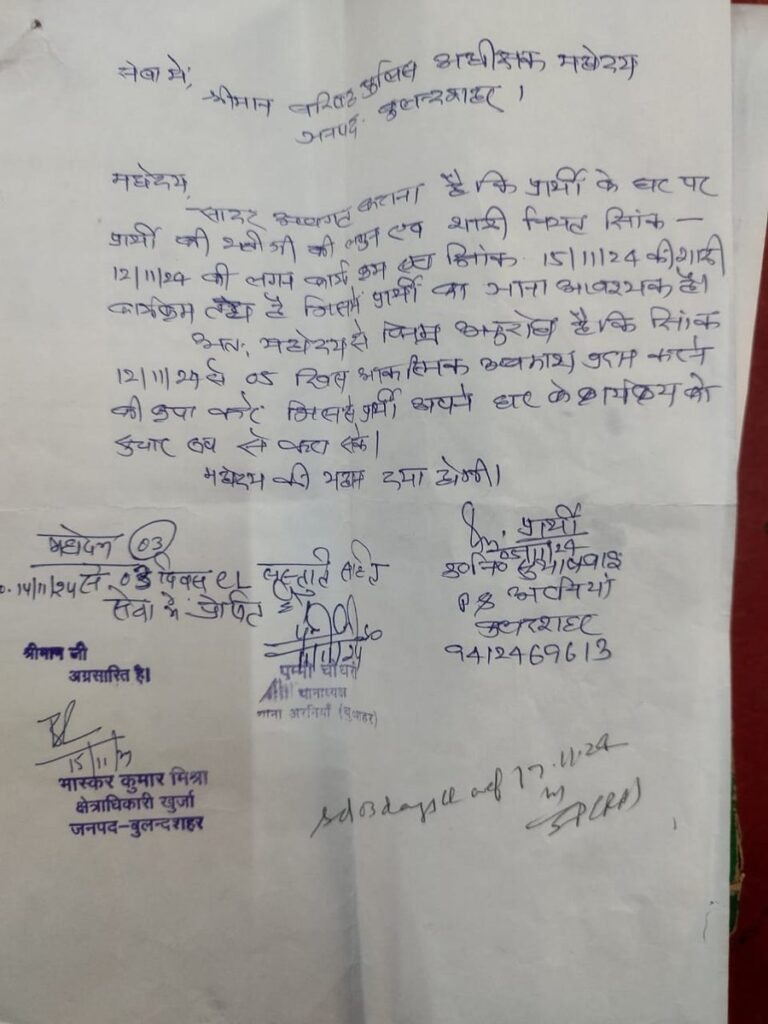 सेवा में,
श्रीमान वरिष्ठ पुलिस अधीक्षक महोदय
जनपद बुलन्दशहर।
महोदय,
सादर अवगत कराना है कि प्रार्थी के घर पर
प्रार्थी की की लगन एवं शादी दिनांक –
12/11/24 की लगन कार्यक्रम दिनांक 15/11/24 की शादी
कार्यक्रम है जिसमें प्रार्थी का जाना आवश्यक है।
अतः महोदय से विनम्र अनुरोध है कि दिनांक
12/11/24 से 05 दिवस आकस्मिक अवकाश प्रदान करने
की कृपा करें जिससे प्रार्थी अपने घर के कार्यक्रम को
रूप से करा सके।
महोदय की महान दया होगी।
महोदय 03
14/11/24 से 03 दिवस CL संस्तुति सहित
सेवा में प्रेषित
प्रार्थी
P S अरनियां
बुलन्दशहर
9412469613
पम्मी चौधरी
थानाध्यक्ष
थाना अरनियाँ (बु०शहर)
श्रीमान जी
अग्रसारित है।
15/11/
भास्कर कुमार मिश्रा
क्षेत्राधिकारी खुर्जा
जनपद-बुलन्दशहर
03 days CL wef 17.11.24